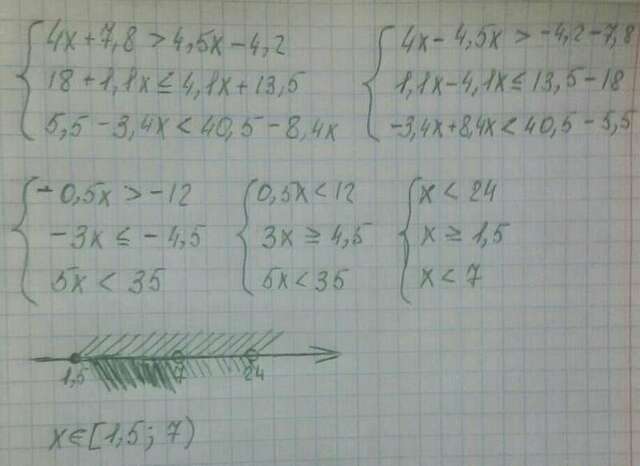 4x+7,8 > 4,5x-4,2
18+1,1x ≤ 4,1x+13,5
5,5-3,4x < 40,5-8,4x
4x-4,5x > -4,2-7,8
1,1x-4,1x ≤ 13,5-18
-3,4x+8,4x < 40,5-5,5
-0,5x > -12
-3x ≤ -4,5
5x < 35
0,5x < 12
3x ≥ 4,5
5x < 35
x < 24
x ≥ 1,5
x < 7
1,5 7 24
x∈[1,5; 7)